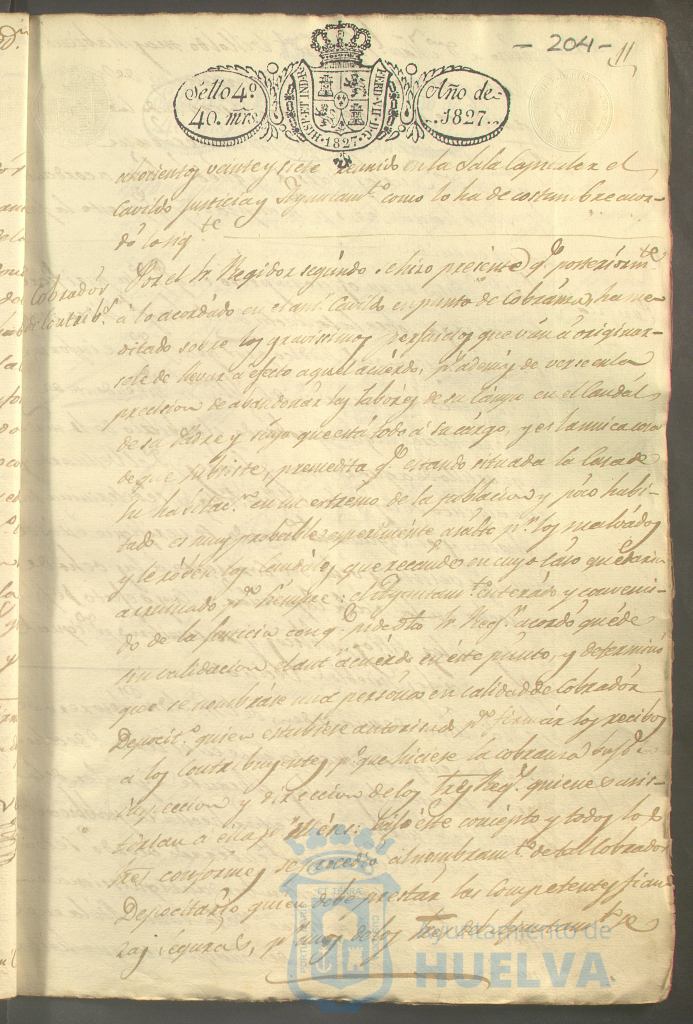 - 204 -
11
Sello 4º
40. mrs
HISP. ET IND. R.
FERD. VII. D. G.
1827
Año de
1827.
ochocientos veinte y siete reunido en la Sala Capitular el
Cavildo Justicia y Ayuntamto como lo ha de costumbre acor-
dó lo sigte
Cobrador
de Contribs
Por el Sr Regidor segundo se hizo presente qe posteriormte
a lo acordado en el antr Cavildo en punto de Cobranza, ha me-
ditado sobre los gravisimos perjuicios que ván á originar-
sele de llevar a efecto aquel acuérdo, ps ademas de verse en la
precision de abandonár las labores de su campo en el Caudál
de su Padre y suyo que está todo á su cárgo, y es la unica cosa
de que subsiste, premedita qe estando situada la Casa de
su habitacn en un estremo de la poblacion y poco habi-
tado es muy probable esperimente asalto pr los malvados
y le róben los caudales que recaude en cuyo caso quedaria
arruinado pa siempre: el Ayuntamto enterado y convenci-
do de la justicia con qe pide dho Sr Regr acordó quéde
sin validacion el antr acuérdo en éste punto, y determinó
que se nombráse una persóna en calidad de Cobradór
Depositro quien estubiese autorizado pa firmár los recibos
a los Contribuyentes, pa que hiciese la cobranza bajo la
inspeccion y direccion de los Tres Regs quienes asis-
tirian a
Bájo éste concépto y todos los
Sres conformes se procedió al nombramto de tal Cobrador
Depocitário quien debe prestar las competentes fian-
zas seguras,
de los Sres del Ayuntamto
Ayuntamiento de
HUELVA